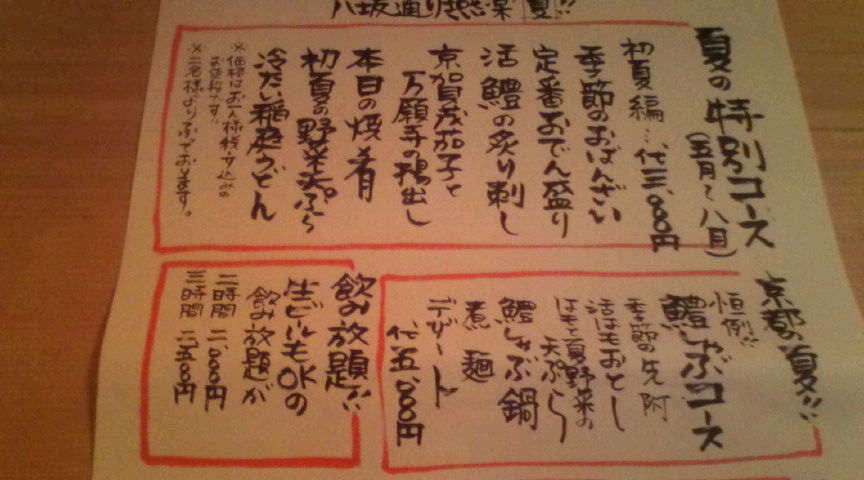 八坂通り燕楽 夏!!
夏の特別コース
(五月〜八月)
初夏編… 代三、〇〇〇円
季節のおばんざい
定番おでん盛り
活鱧の炙り刺し
京賀茂茄子と
万願寺の揚出し
本日の焼肴
初夏の野菜天ぷら
冷たい稲庭うどん
※価格はお一人様税サ込みの
お値段です。
※二名様より承っております。
京都の夏!!
恒例!!
鱧しゃぶコース
季節の先附
活はもおとし
はもと夏野菜の
天ぷら
鱧しゃぶ鍋
煮麺
デザート
代五、〇〇〇円
飲み放題!!
生ビールもOKの
飲み放題が
二時間 二、〇〇〇円
三時間 二、五〇〇円